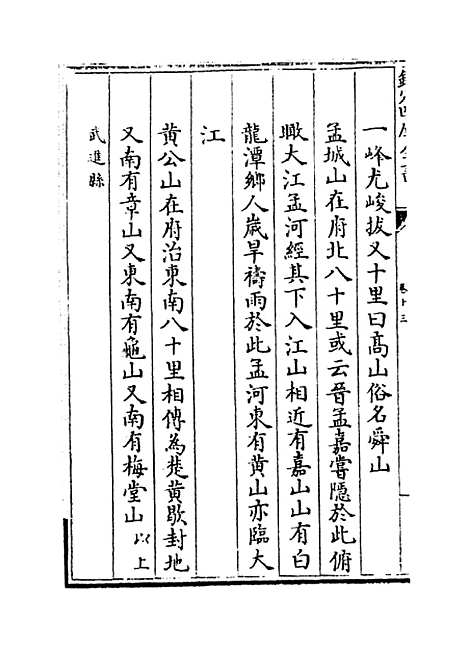 一峰尤峻拔又十里曰髙山俗名舜山
孟城山在府北八十里或云晉孟嘉嘗隠於此俯
瞰大江孟河經其下入江山相近有嘉山山有白
龍潭鄉人嵗旱禱雨於此孟河東有黄山亦臨大
江
黄公山在府治東南八十里相傳為楚黄歇封地
又南有章山又東南有龜山又南有梅堂山以上
武進縣
卷十三